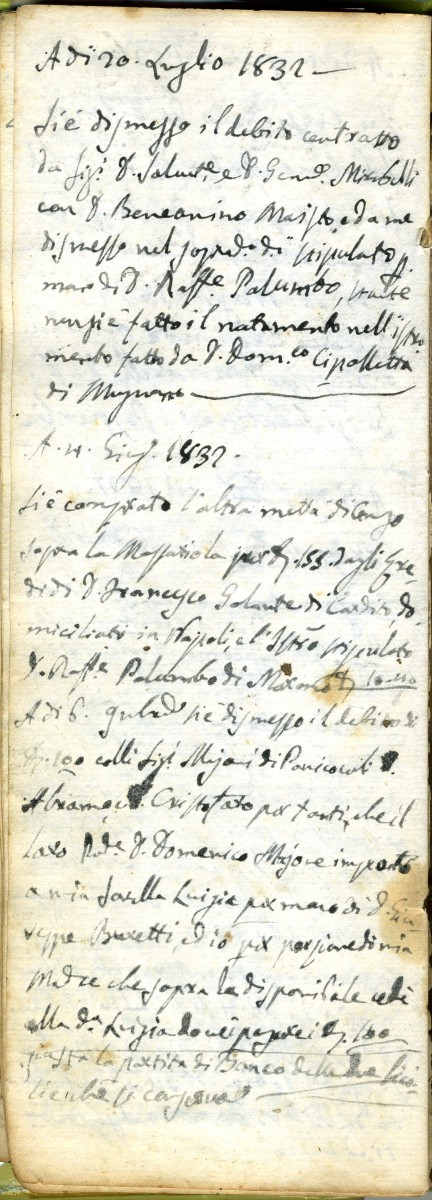 Adi 20. Luglio 1832 —
Si è dismesso il debito contratto
da Sigi D. Salvat.e e D. Genn.o Mirabelli
con D. Beneamino Maisto, e da me
dismesso nel sopradº dì stipulato p.
mano di D. Raff.e Palumbo,
nensi è fatto il notamento nell'istro
mento fatto da D. Dom.co Cipolletta
di Mugnano —
A. 14. Giug. 1832.
Si è comprato l'altra metta di Cenzo
sopra la Massariola per D. 155. dagli Ere-
di di D. Francesco Galante di Cardito do-
miciliati in Napoli, e l'Istrº stipulato
D. Raff.e Palumbo di Marano
A di 6. si è dismesso il debito di
D. 100 colli Sigi Majoni di Panicocoli
Cristofaro per tanti, che il
D. Domenico Majone
a mia sorella Luigia per mano di D. Giu-
seppe ed io per porzione di mia
Madre che sopra la disponibile cedè
alla dª Luigia docei pagare i D. 100
la partita di Banco
si conserva —